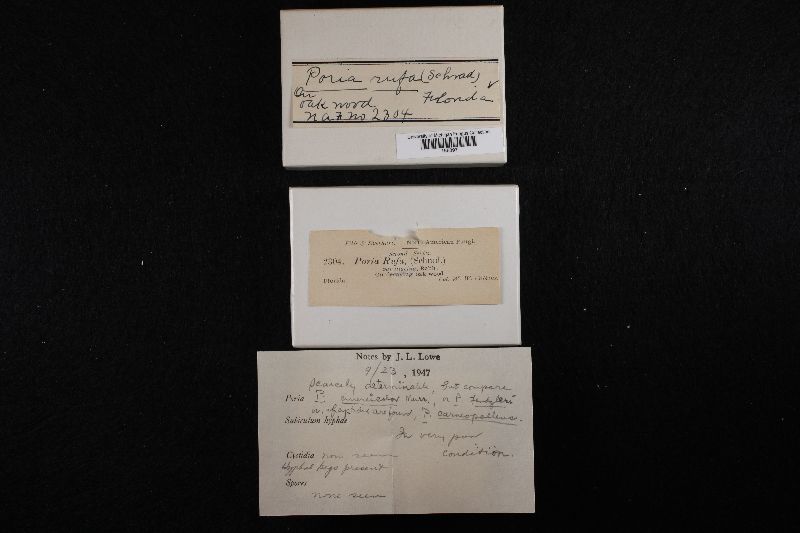 Poria rufa (Schrad)
On
oak wood Florida
N A F no 2304
University of Michigan Fungus Collection
Ellis & Everhart. North American Fungi.
Second Series.
2304. Poria Rufa, (Schrad.)
On decaying oak wood.
Florida. Col. W. W. Calkins.
Notes by J. L. Lowe
9/23, 1947
Scarcely determinable, but compare
Poria P. Murr., or P. Fendzleri
or, if cystidia are found, P. carneopallens.
Subiculum hyphae
In very poor
Cystidia none seen condition.
Hyphal pegs present
Spores
none seen